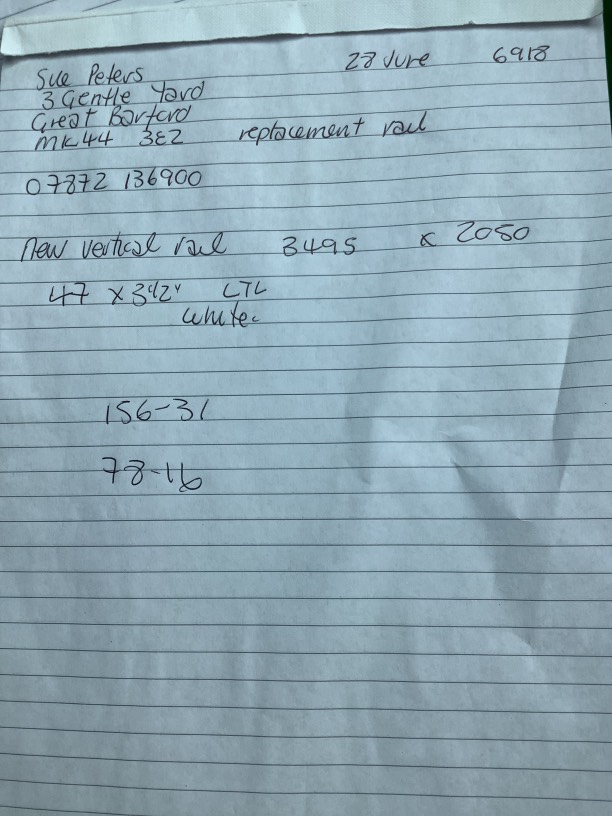 28 June 6918
Sue Peters
3 Gentle Yard
Great Barford
MK44 3EZ replacement rail
07872 136900
new vertical rail 3495 x 2050
47 x 3 1/2" LTL
white
156-31
78-16